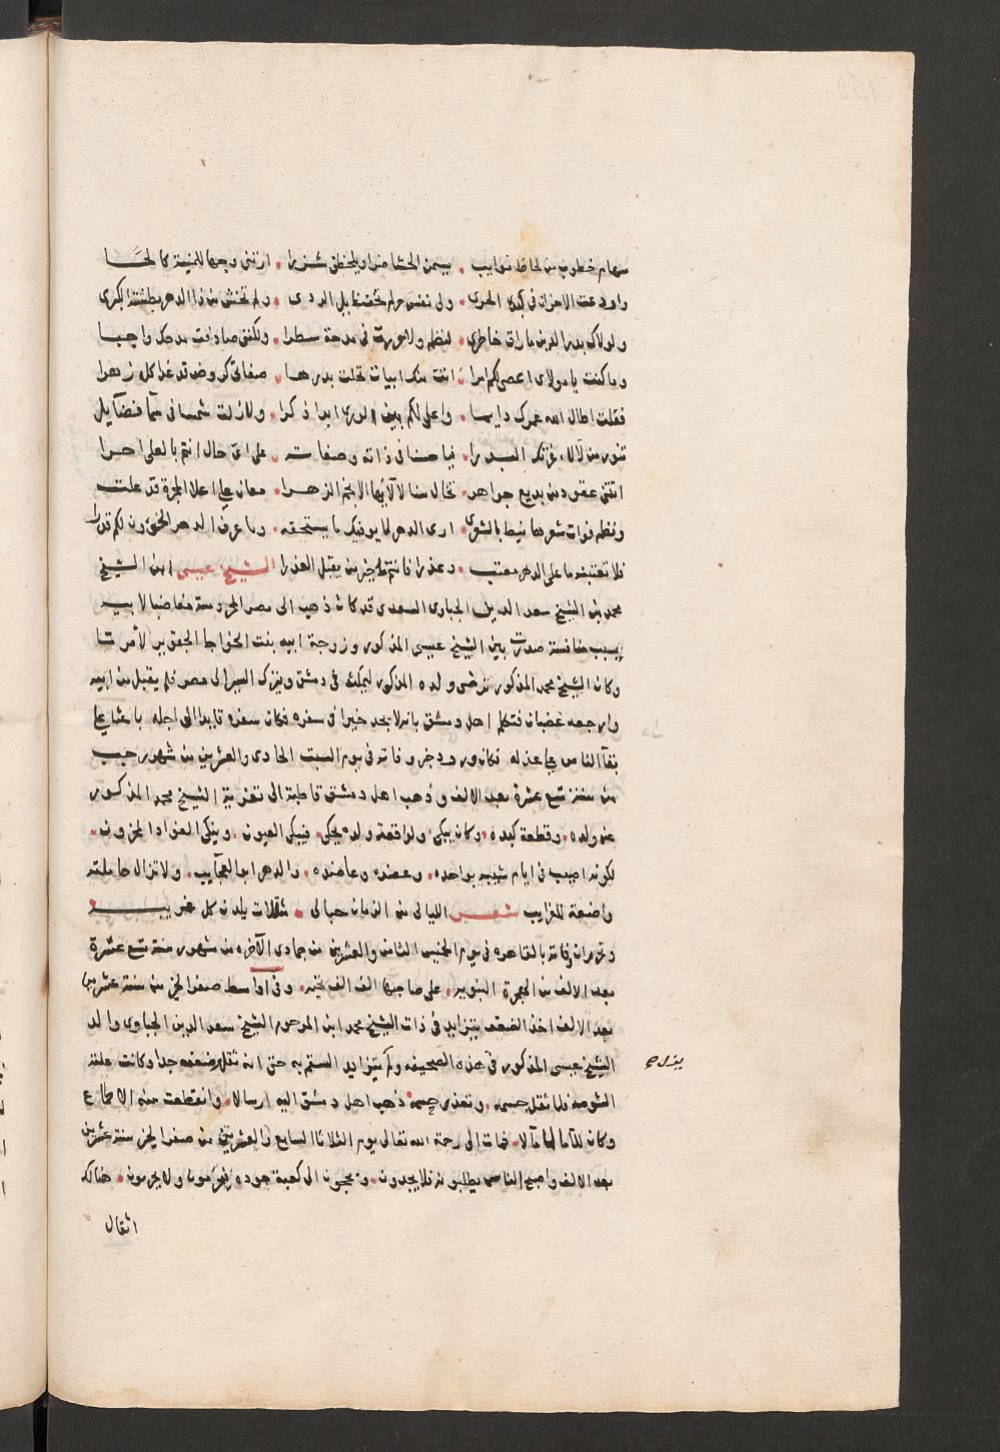 سهام خطوب من لحاظ نوايب . يسمن الحشا ضرا ويلحظن شزرا . ارتنى وجها للمنية كالحا
واودعت الاحزان فى كبدى الحرى . ولى نفس حر لم تخف نابل الردى . ولم تخش من ذا الدهر بطشته الكبرى
ولولاك بدر الدين ما راق خاطرى . لنظم ولا صورت فى مدحة سطرا . ولكننى صادفت مدحك واجبا
وما كنت يا مولاى اعصى لكم امرا . اتت منك ابيات تجلت بدرها . صفاتى كروض قد غدا كل زهرا
فقلت اطال الله عمرك دايما . واعلى لكم بين الورى ابدا ذكرا . ولا زلت شمسا فى سما فضايل
تنور من لالاء غرتك البدرا . فيا حسنا فى ذاته وصفاته . على اى حال انتم بالعلى احرا
اتتنى عقود من بديع جواهر . تخال سنا لآلايها الانجم الزهرا . معان على اعلا المجرة قد علت
ونظم فوات شعرها نيط بالشعرى . ارى الدهر لا يوفيك ما تستحقه . وما عرف الدهر الخؤون لكم قدرا
فلا تعتبن ما على الدهر معتب . وعذرا فانتم خير من يقبل العذرا الشيخ عيسى ابن الشيخ
محمد بن الشيخ سعد الدين الجباوى السعدى قد كان ذهب الى مصر المحروسة مغاضبا لابيه
بسبب منافسة صدرت بين الشيخ عيسى المذكور وزوجة ابيه بنت الخواجا الجعفرى لامر ما
وكان الشيخ محمد المذكور ترضى ولده المذكور ليمكث فى دمشق ويترك السير الى مصر فلم يقبل من ابيه
وارجعه غضبان فتكلم اهل دمشق بانه لا يجد خيرا فى سفره فكان سفره قايدا الى اجله باعثا على
بقا الناس على عذله فكان ورود خبر وفاته فى يوم السبت الحادى والعشرين من شهور رجب
من سنة تسع عشرة بعد الالف وذهب اهل دمشق قاطبة الى تعزية الشيخ محمد المذكور
عن ولده . وقطعة كبده . وكان يبكى ولواقعة ولده يحكى . فيبكى العيون . وينكى الفؤاد المحزون .
لكونه اصيب فى ايام شيبه بواحده . وعضده وعاضده . والدهر ابا العجايب . ولا تزال حاملته
واضعة للغرايب شعر الليالى من الزمان حبالى . مثقلات يلدن كل غريب
وتحرر ان وفاته بالقاهره فى يوم الخميس الثامن والعشرين من جمادى الآخره من شهور سنة تسع عشرة
بعد الالف من الهجرة النبويه . على صاحبها الف الف تحيه . وفى اواسط صفر الخير من سنة عشرين
بعد الالف اخذ الضعف يتزايد فى ذات الشيخ محمد ابن المرحوم الشيخ سعد الدين الجباوى والد
الشيخ عيسى المذكور فى هذه الصحيفه ولم يتزايد السقم به حتى انه ثقل ضعفه جدا وكانت علته
الشوصه فلما ثقل جسمه . وتعذر جسه . ذهب اهل دمشق اليه ارسالا . وانقطعت منه الاطماع
وكان للآمال مآلا . فمات الى رحمة الله تعالى يوم الثلاثا السابع والعشرين من صفر الخير سنة عشرين
بعد الالف واصبح الناس يطلبونه فلا يجدون . ويحجون الى كعبة جوده ولا يحرمون . هنالك
اثقال